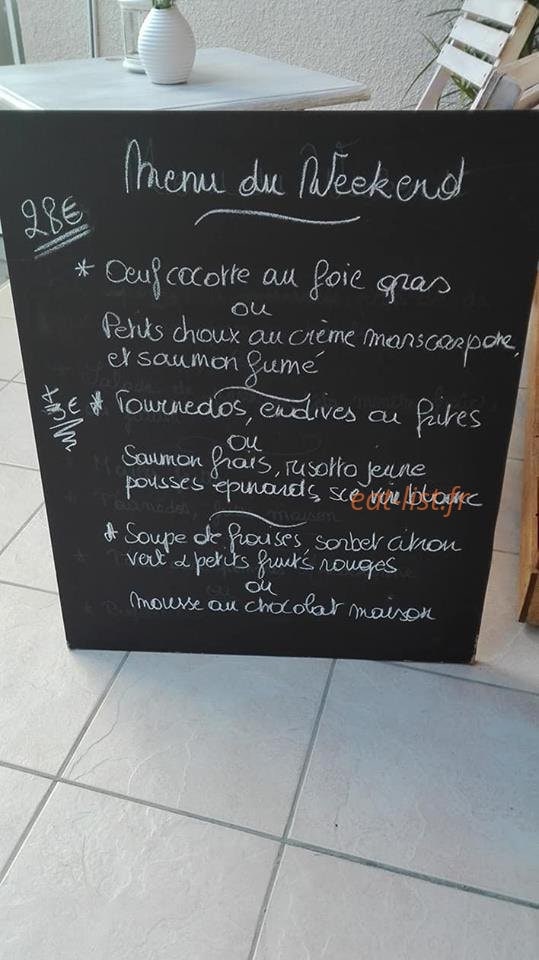 Menu du Weekend
28€
* Oeuf cocotte au foie gras
ou
Petits choux au crème marscarpone,
et saumon fumé
+3€ * Tournedos, endives ou frites
ou
Saumon frais, risotto jeune
pousses épinards, sce
eat-list.fr
* Soupe de fraises, sorbet citron
vert & petits fruits rouges
ou
mousse au chocolat maison